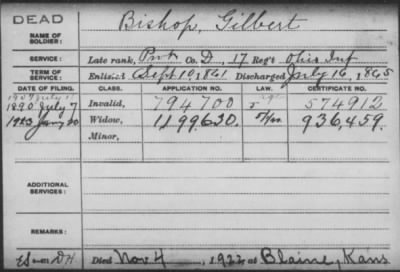 DEAD
NAME OF SOLDIER:
Bishop, Gilbert
SERVICE:
Late rank, Pvt Co. D, 17 Reg't Ohio Inf
TERM OF SERVICE:
Enlisted Sept 10, 1861 Discharged July 16, 1865
DATE OF FILING. CLASS. APPLICATION NO. LAW. CERTIFICATE NO.
1890 July 7 Invalid, 794700 574912
1923 Jany 20 Widow, 1199620. 936,459.
Minor,
ADDITIONAL SERVICES:
REMARKS:
Died Nov 4, 1922 at Blaine, Kans